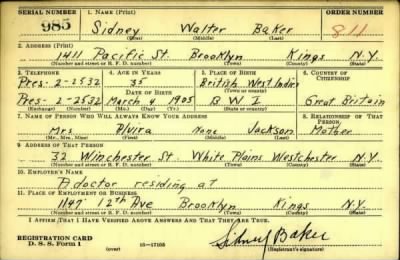 SERIAL NUMBER 1. NAME (Print) ORDER NUMBER
985 Sidney Walter Baker 811
(First) (Middle) (Last)
2. ADDRESS (Print)
1411 Pacific St. Brooklyn Kings N.Y.
(Number and street or R. F. D. number) (Town) (County) (State)
3. TELEPHONE 4. AGE IN YEARS 5. PLACE OF BIRTH 6. COUNTRY OF CITIZENSHIP
Pres- 2-2532 35 British West Indies
DATE OF BIRTH (Town or county)
Pres- 2-2532 March 4 1905 B W I Great Britain
(Exchange) (Number) (Mo.) (Day) (Yr.) (State or country)
7. NAME OF PERSON WHO WILL ALWAYS KNOW YOUR ADDRESS 8. RELATIONSHIP OF THAT PERSON
Mrs None Jackson Mother
(Mr., Mrs., Miss) (First) (Middle) (Last)
9. ADDRESS OF THAT PERSON
32 Winchester St. White Plains Westchester N.Y.
(Number and street or R. F. D. number) (Town) (County) (State)
10. EMPLOYER'S NAME
A doctor residing at
11. PLACE OF EMPLOYMENT OR BUSINESS
1147 12th Ave Brooklyn Kings N.Y.
(Number and street or R. F. D. number) (Town) (County) (State)
I AFFIRM THAT I HAVE VERIFIED ABOVE ANSWERS AND THAT THEY ARE TRUE.
REGISTRATION CARD
D. S. S. Form 1 (over) 16-17105 Sidney Baker
(Registrant's signature)